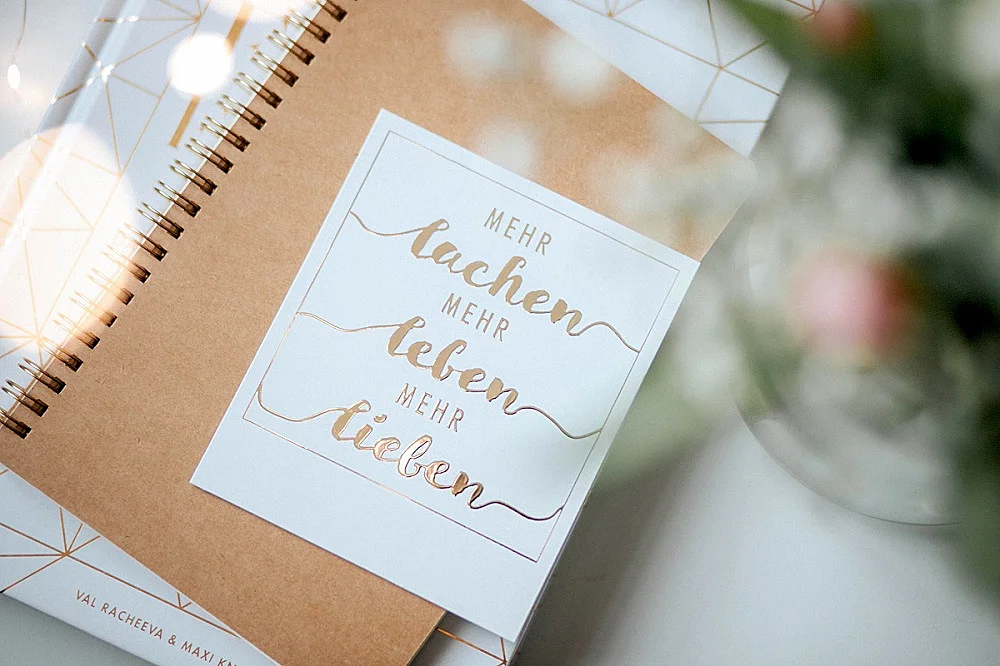 MEHR
lachen
MEHR
leben
MEHR
lieben
VAL RACHEEVA & MAXI